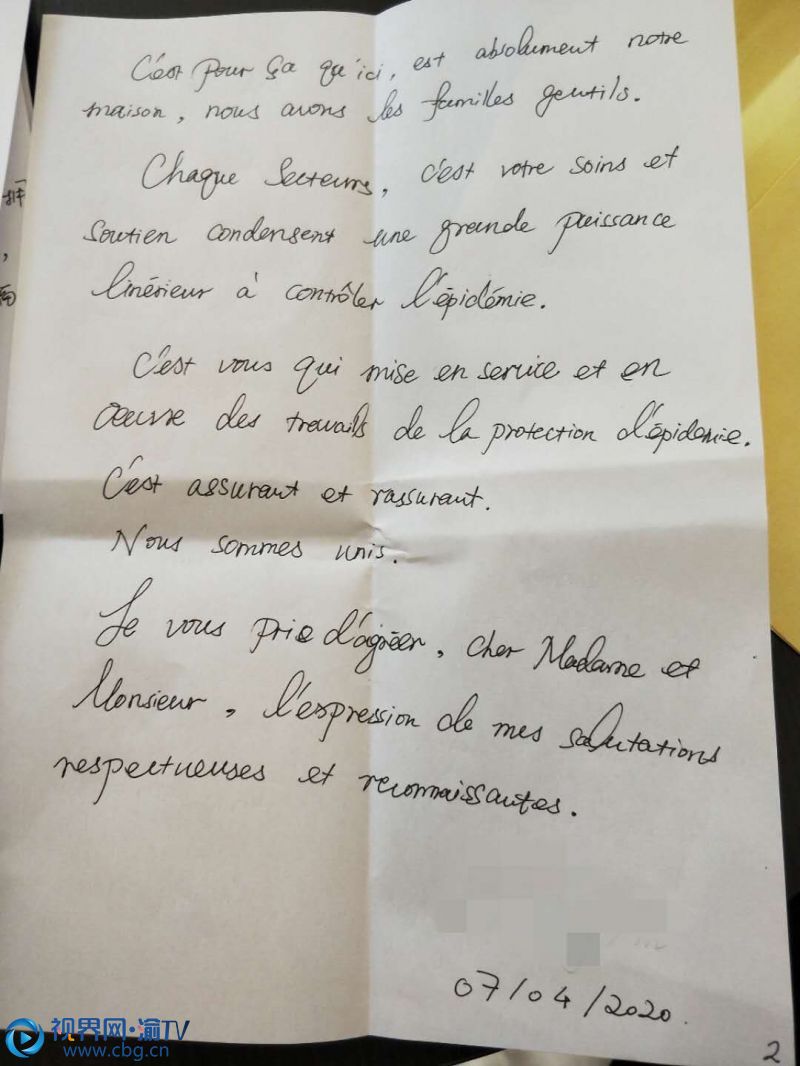 C'est pour ça qu'ici, est absolument notre
maison, nous avons les familles gentils.
Chaque secteurs, c'est votre soins et
soutien condensent une grande puissance
linérieur à contrôler l'épidémie.
C'est vous qui mise en service et en
oeuvre des travails de la protection d'épidemie.
C'est assurant et rassurant.
Nous sommes unis.
Je vous prie d'agréer, cher Madame et
Monsieur, l'expression de mes salutations
respectueuses et reconnaissantes.
07/04/2020.
2
视界网·渝TV
www.cbg.cn